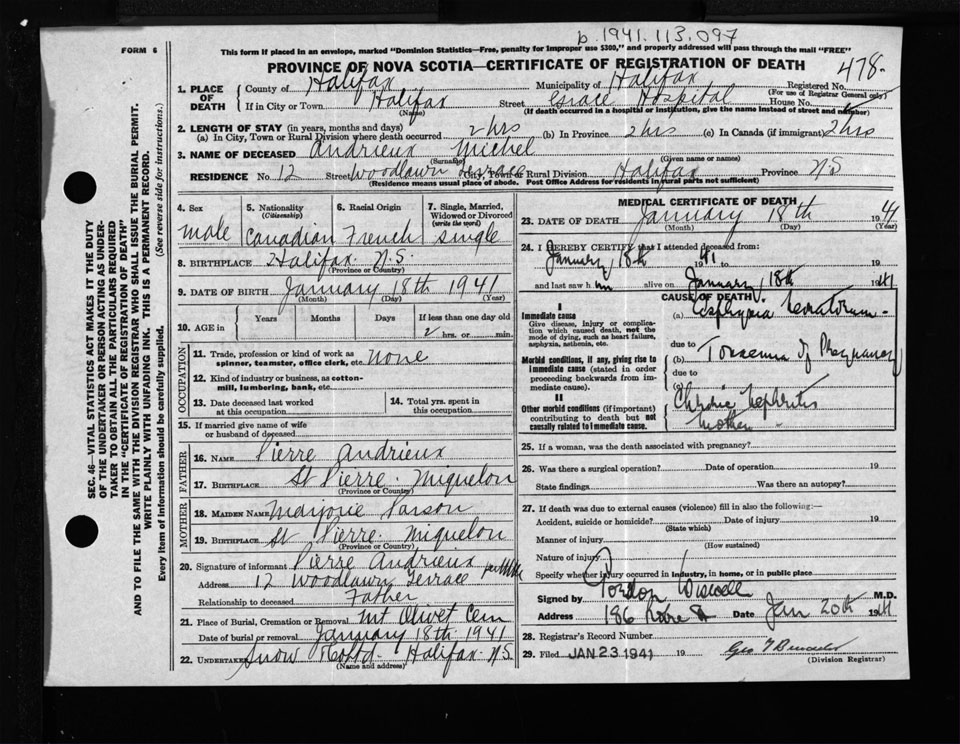 p. 1941.113.097
FORM 6
This form if placed in an envelope, marked "Dominion Statistics—Free, penalty for improper use $300," and properly addressed will pass through the mail "FREE"
PROVINCE OF NOVA SCOTIA—CERTIFICATE OF REGISTRATION OF DEATH
478.
SEC. 46—VITAL STATISTICS ACT MAKES IT THE DUTY
OF THE UNDERTAKER OR PERSON ACTING AS UNDER-
TAKER TO OBTAIN ALL THE PARTICULARS REQUIRED
IN THE "CERTIFICATE OF REGISTRATION OF DEATH"
AND TO FILE THE SAME WITH THE DIVISION REGISTRAR WHO SHALL ISSUE THE BURIAL PERMIT.
WRITE PLAINLY WITH UNFADING INK. THIS IS A PERMANENT RECORD.
Every item of information should be carefully supplied. (See reverse side for instructions.)
1. PLACE OF DEATH
County of Halifax Municipality of Halifax Registered No.
(For use of Registrar General only)
If in City or Town Halifax Street Grace Hospital House No.
(Name) (If death occurred in a hospital or institution, give the name instead of street and number)
2. LENGTH OF STAY (in years, months and days)
(a) In City, Town or Rural Division where death occurred 2 hrs (b) In Province 2 hrs (c) In Canada (if immigrant) 2 hrs
3. NAME OF DECEASED Andrieux Michel
(Surname) (Given name or names)
RESIDENCE No. 12 Street Woodlawn Terrace City, Town or Rural Division Halifax Province N.S
(Residence means usual place of abode. Post Office Address for residents in rural parts not sufficient)
4. Sex
male
5. Nationality
(Citizenship)
Canadian
6. Racial Origin
French
7. Single, Married, Widowed or Divorced
(write the word)
single
8. BIRTHPLACE Halifax N.S.
(Province or Country)
9. DATE OF BIRTH January 18th 1941
(Month) (Day) (Year)
10. AGE in Years Months Days If less than one day old
2 hrs. or min.
OCCUPATION
11. Trade, profession or kind of work as spinner, teamster, office clerk, etc. none
12. Kind of industry or business, as cotton-mill, lumbering, bank, etc.
13. Date deceased last worked at this occupation
14. Total yrs. spent in this occupation
15. If married give name of wife or husband of deceased
FATHER
16. NAME Pierre Andrieux
17. BIRTHPLACE St Pierre Miquelon
(Province or Country)
MOTHER
18. MAIDEN NAME Marjorie Parson
19. BIRTHPLACE St Pierre Miquelon
(Province or Country)
20. Signature of informant Pierre Andrieux
Address 12 Woodlawn Terrace
Relationship to deceased Father
21. Place of Burial, Cremation or Removal Mt Olivet Cem
Date of burial or removal January 18th 1941
22. UNDERTAKER Snow & Co Ltd. Halifax N.S.
(Name and address)
MEDICAL CERTIFICATE OF DEATH
23. DATE OF DEATH January 18th 1941
(Month) (Day) (Year)
24. I HEREBY CERTIFY that I attended deceased from:
January 18th 1941 January 18th
and last saw him alive on 1941
CAUSE OF DEATH
I
Immediate cause
Give disease, injury or complication which caused death, not the mode of dying, such as heart failure, asphyxia, asthenia, etc.
(a) Asphyxia Neonatorum
due to
Morbid conditions, if any, giving rise to immediate cause (stated in order proceeding backwards from immediate cause).
(b) Toxaemia of Pregnancy
due to
(c) Chronic Nephritis
Mother "
II
Other morbid conditions (if important) contributing to death but not causally related to immediate cause.
25. If a woman, was the death associated with pregnancy?
26. Was there a surgical operation? Date of operation 19
State findings Was there an autopsy?
27. If death was due to external causes (violence) fill in also the following:—
Accident, suicide or homicide? Date of injury 19
(State which)
Manner of injury
(How sustained)
Nature of injury
Specify whether injury occurred in industry, in home, or in public place
Signed by Gordon Wiswell M.D.
Address 186 Robie St Date Jan 20th 1941
28. Registrar's Record Number
29. Filed JAN 23 1941 19
(Division Registrar)